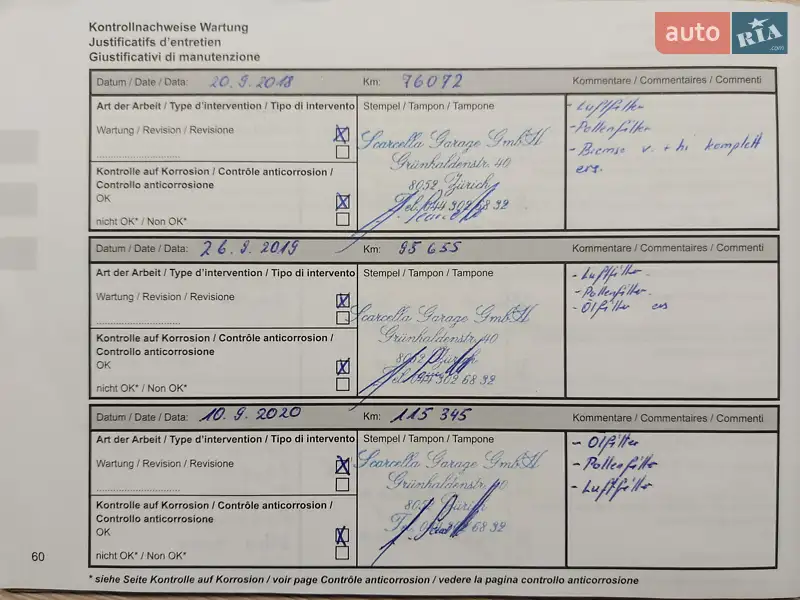 Kontrollnachweise Wartung
Justificatifs d'entretien
Giustificativi di manutenzione
auto RIA .com
Datum / Date / Data: 20.9.2018 Km: 76072 Kommentare / Commentaires / Commenti
Art der Arbeit / Type d'intervention / Tipo di intervento Stempel / Tampon / Tampone
- Luftfilter
Wartung / Revision / Revisione
- Pollenfilter
Scarcella Garage GmbH
- Bremse v. + hi komplett
Grünhaldenstr. 40
ers.
Kontrolle auf Korrosion / Contrôle anticorrosion /
Controllo anticorrosione
8052 Zürich
OK
Tel. 044 302 68 92
nicht OK* / Non OK*
Datum / Date / Data: 26.9.2019 Km: 95 655 Kommentare / Commentaires / Commenti
Art der Arbeit / Type d'intervention / Tipo di intervento Stempel / Tampon / Tampone
- Luftfilter
- Pollenfilter
Wartung / Revision / Revisione
- Ölfilter ers
Scarcella Garage GmbH
Grünhaldenstr. 40
Kontrolle auf Korrosion / Contrôle anticorrosion /
Controllo anticorrosione
8052 Zürich
OK
Tel. 044 302 68 92
nicht OK* / Non OK*
Datum / Date / Data: 10.9.2020 Km: 115 345 Kommentare / Commentaires / Commenti
Art der Arbeit / Type d'intervention / Tipo di intervento Stempel / Tampon / Tampone
- Ölfilter
Wartung / Revision / Revisione
- Pollenfilter
Scarcella Garage GmbH
- Luftfilter
Grünhaldenstr. 40
Kontrolle auf Korrosion / Contrôle anticorrosion /
8052 Zürich
Controllo anticorrosione
OK
nicht OK* / Non OK*
60
* siehe Seite Kontrolle auf Korrosion / voir page Contrôle anticorrosion / vedere la pagina controllo anticorrosione